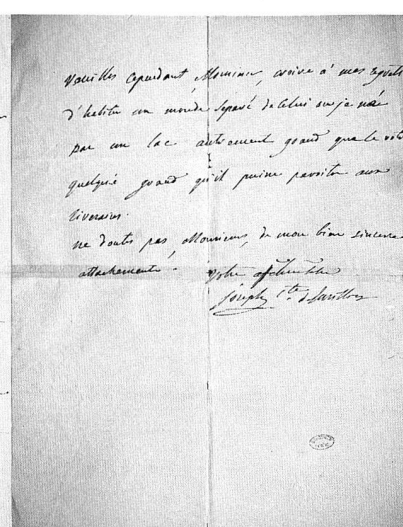 Veuillez cependant, Monsieur, croire à mes regrets
d'habiter un monde séparé de celui où je
par un lac autrement grand que le votre
quelque grand qu'il puisse paroitre aux
riverains.
ne doutez pas, Monsieur, de mon bien sincere
attachement.
Votre
Joseph Cte de